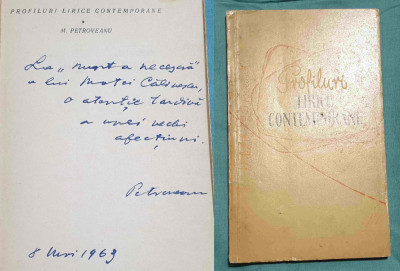 PROFILURI LIRICE CONTEMPORANE
M. PETROVEANU
La „
a lui Matei Călinescu,
o atenție tardivă
a unei vechi
afecțiuni.
Petroveanu
8 1963
Profiluri
LIRICE
CONTEMPORANE